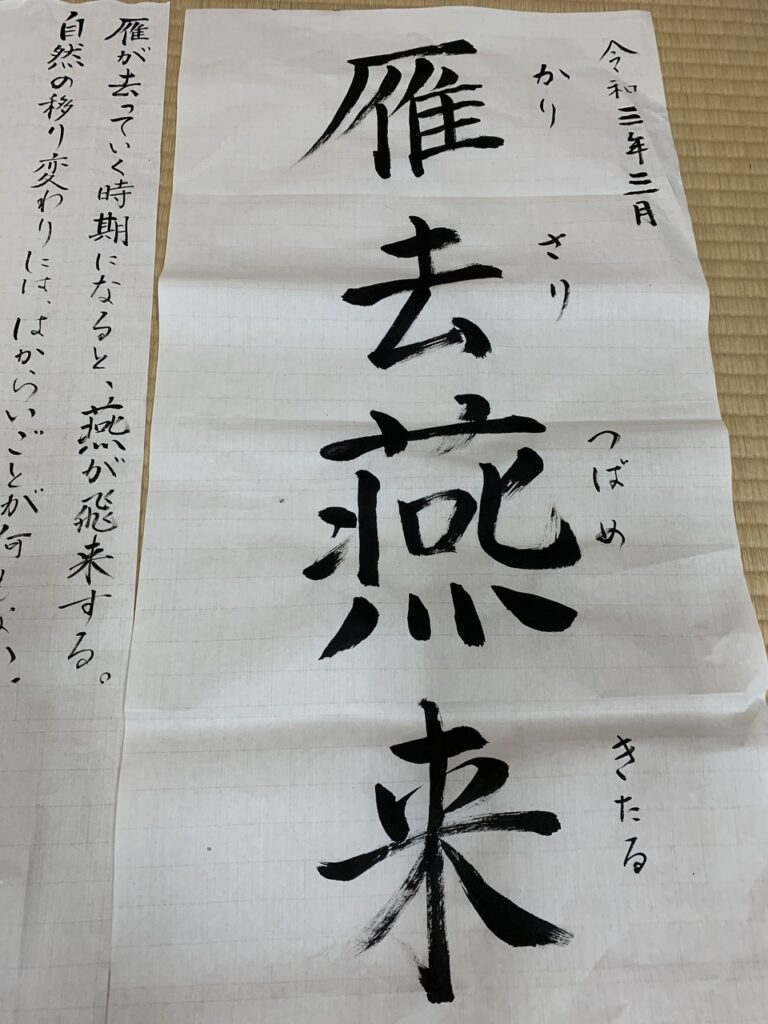 令和三年三月
かり さり つばめ きたる
雁去燕来
雁が去っていく時期になると、燕が飛来する。
自然の移り変わりには、はからいごとが何もない。